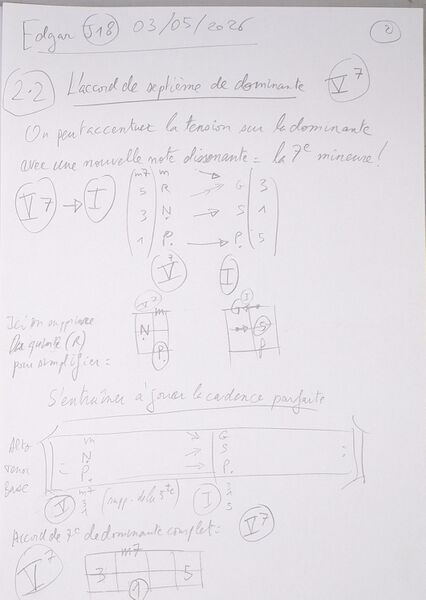 Edgar J18 03/05/2026 2
2.2 L'accord de septième de dominante V7
On peut accentuer la tension sur la dominante
avec une nouvelle note dissonante = la 7e mineure !
V7 → I
m7 m → G 3
5 R
3 N. → S 1
1 P. → P. 5
V7 I
Ici on supprime
la quinte (R)
pour simplifier =
m
N.
P.
G
S
P
S'entraîner à jouer la cadence parfaite
Alto m → G
Tenor N. → S
Base P. → P.
V m7 3 1 (supp. de la 5te) I 3 1 5
Accord de 7e de dominante complet = V7
V7
m7
3 5
1